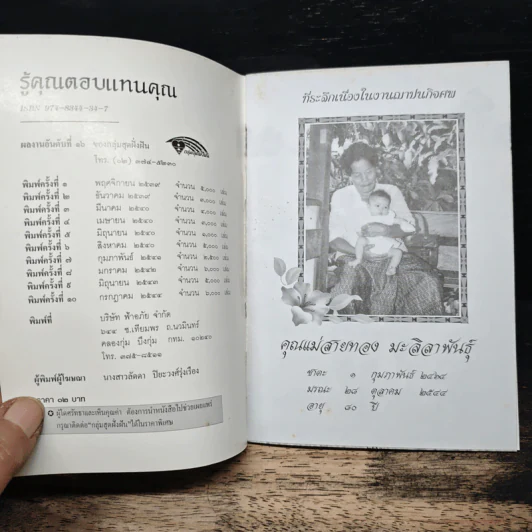 รู้คุณตอบแทนคุณ
ISBN 974-8344-34-7
ผลงานอันดับที่ ๑๖ ของกลุ่มสุดฝั่งฝัน
โทร. (๐๒) ๓๗๔-๕๒๓๐
พิมพ์ครั้งที่ ๑ พฤศจิกายน ๒๕๓๙ จำนวน ๕,๐๐๐ เล่ม
พิมพ์ครั้งที่ ๒ ธันวาคม ๒๕๓๙ จำนวน ๕,๐๐๐ เล่ม
พิมพ์ครั้งที่ ๓ มีนาคม ๒๕๔๐ จำนวน
พิมพ์ครั้งที่ ๔ เมษายน ๒๕๔๐ จำนวน
พิมพ์ครั้งที่ ๕ มิถุนายน ๒๕๔๐ จำนวน
พิมพ์ครั้งที่ ๖ สิงหาคม ๒๕๔๐ จำนวน ๕,๐๐๐ เล่ม
พิมพ์ครั้งที่ ๗ กุมภาพันธ์ ๒๕๔๑ จำนวน
พิมพ์ครั้งที่ ๘ มกราคม ๒๕๔๒ จำนวน
พิมพ์ครั้งที่ ๙ มิถุนายน ๒๕๔๓ จำนวน
พิมพ์ครั้งที่ ๑๐ กรกฎาคม ๒๕๔๔ จำนวน
พิมพ์ที่ บริษัท ฟ้าอภัย จำกัด
๖๔๔ ซ.เทียมพร ถ.นวมินทร์
คลองกุ่ม บึงกุ่ม กทม. ๑๐๒๔๐
โทร. ๓๗๕-๘๕๑๑
ผู้พิมพ์ผู้โฆษณา นางสาวลัดดา ปิยะวงศ์รุ่งเรือง
ราคา ๑๒ บาท
ผู้ใดศรัทธาและเห็นคุณค่า ต้องการนำหนังสือไปช่วยเผยแพร่
กรุณาติดต่อ"กลุ่มสุดฝั่งฝัน"ได้ในราคาพิเศษ
ที่ระลึกเนื่องในงานฌาปนกิจศพ
คุณแม่สายทอง มะลิลาพันธุ์
ชาตะ ๑ กุมภาพันธ์ ๒๔๖๔
มรณะ ๒๘ ตุลาคม ๒๕๔๔
อายุ ๘๐ ปี